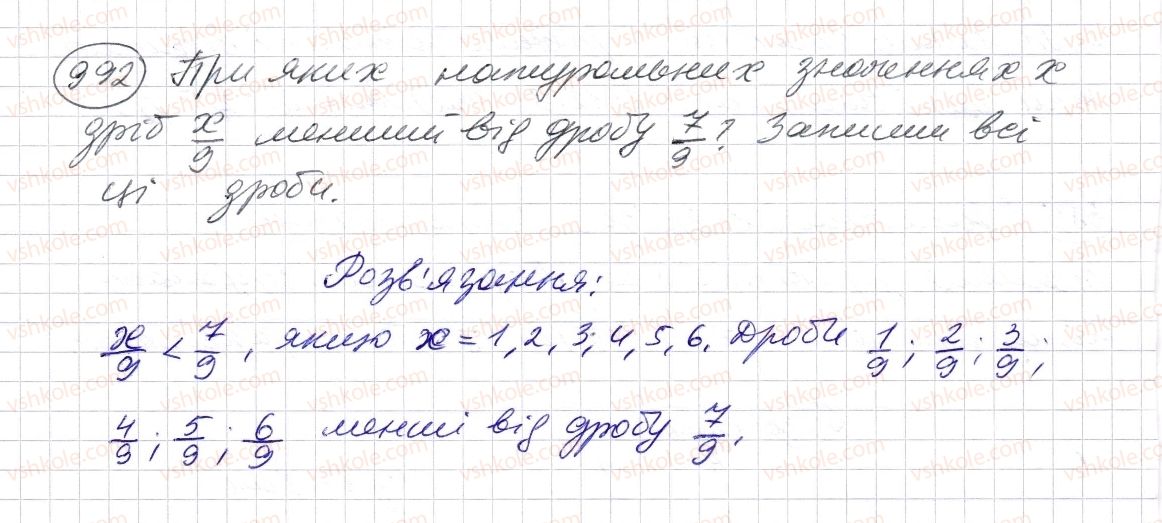 992 При яких натуральних значеннях x
дріб x/9 менший від дробу 7/9? Запиши всі
ці дроби.
Розв'язання:
x/9 < 7/9, якщо x = 1, 2, 3, 4, 5, 6. Дроби 1/9; 2/9; 3/9;
4/9; 5/9; 6/9 менші від дробу 7/9.